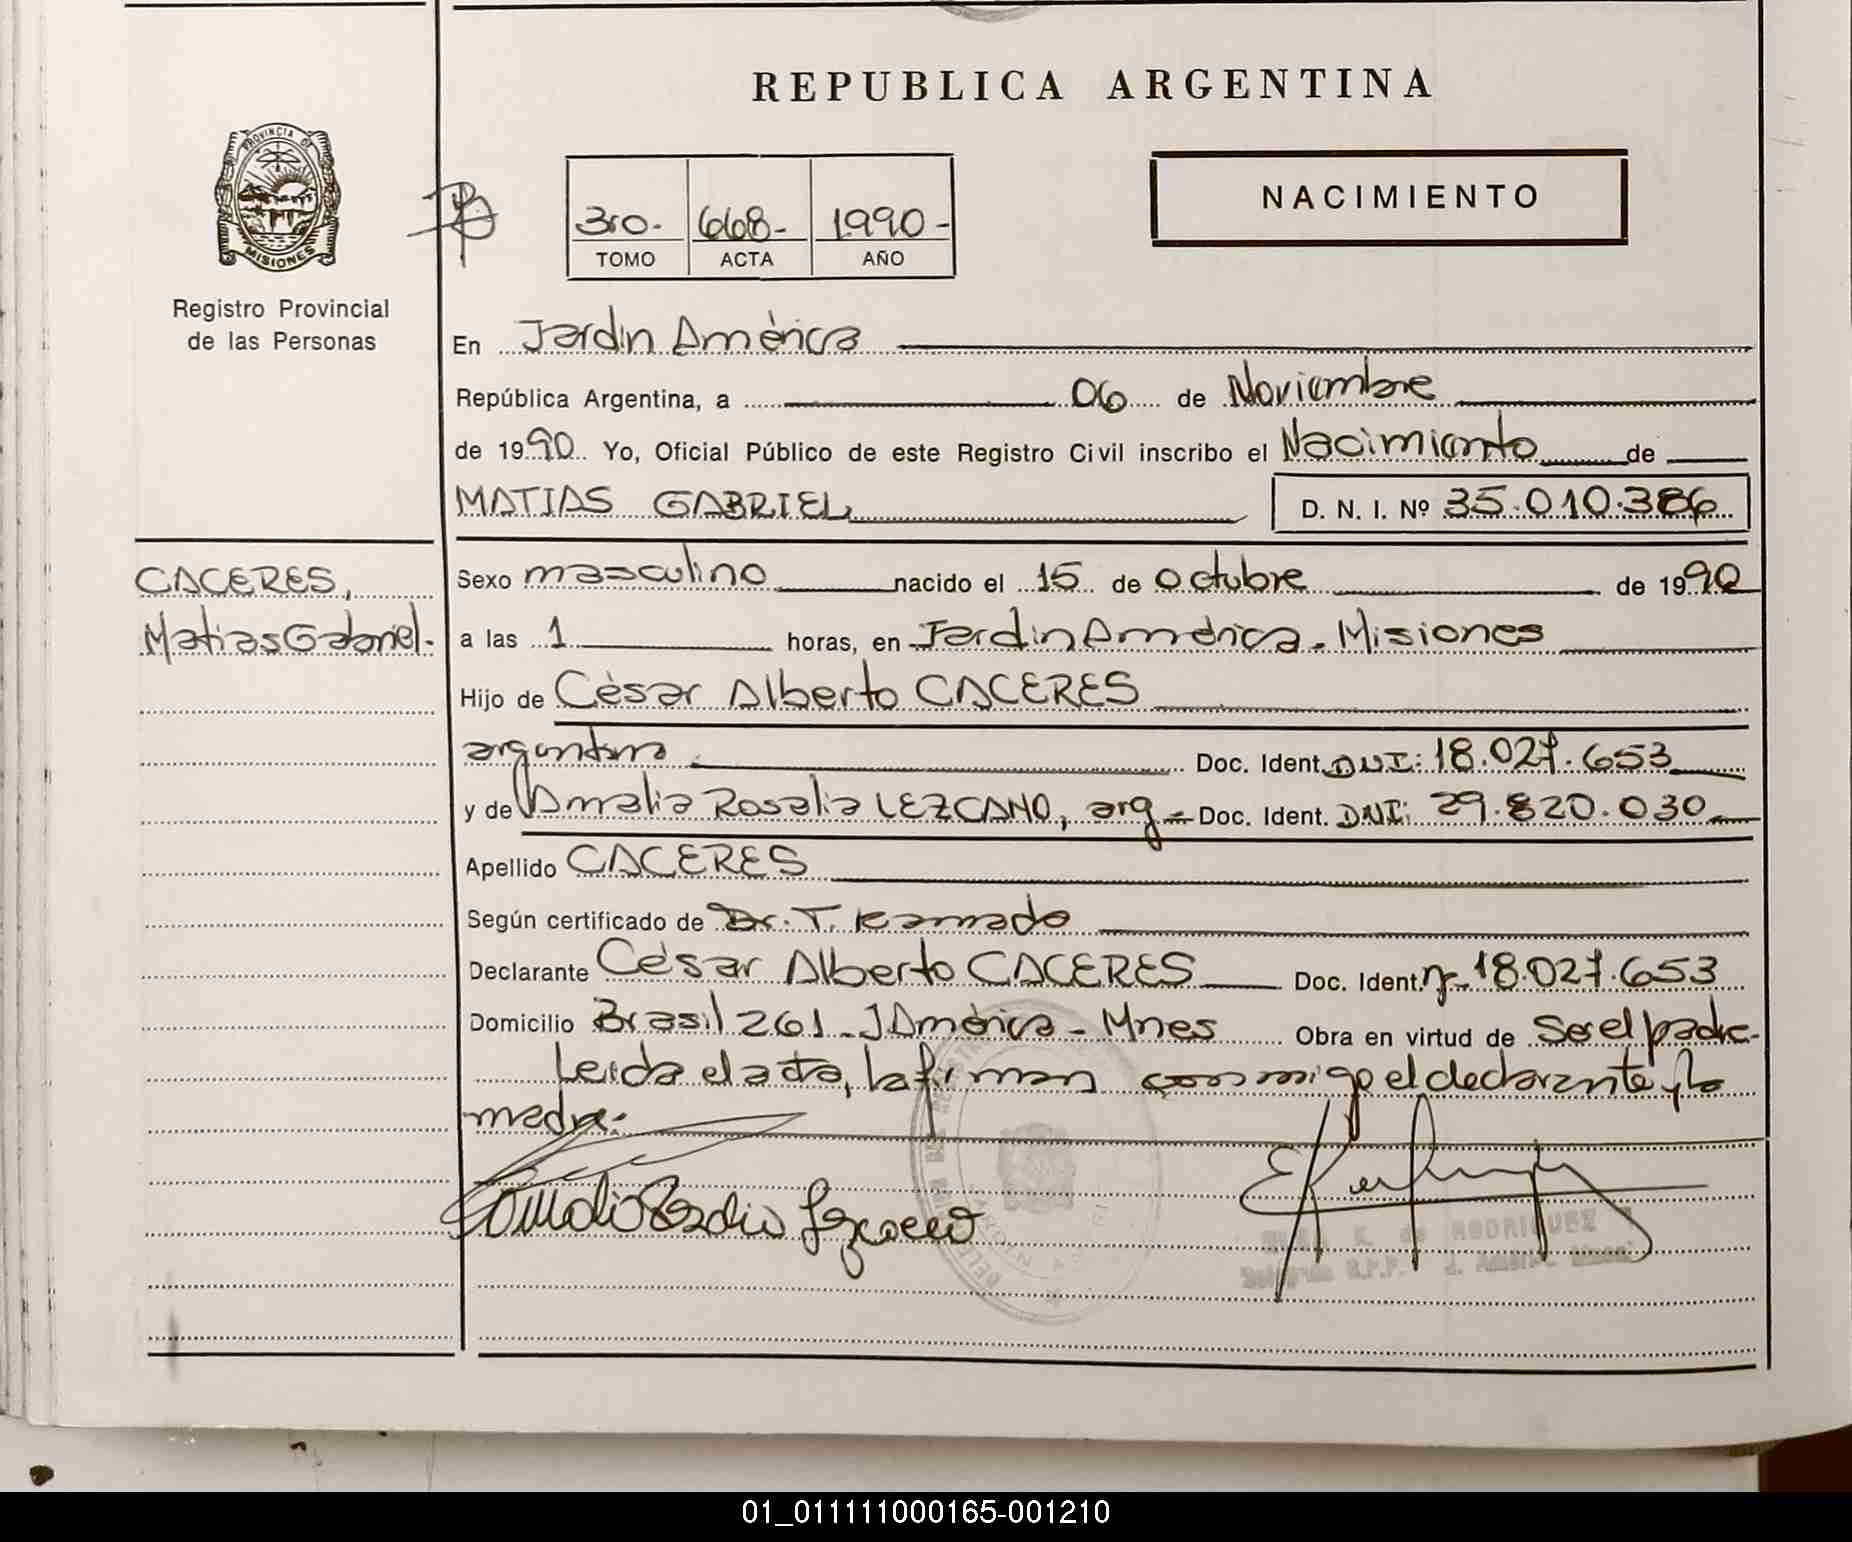 REPUBLICA ARGENTINA
PROVINCIA DE
MISIONES
Registro Provincial
de las Personas
3ro.- 668- 1990-
TOMO ACTA AÑO
NACIMIENTO
En Jardin América
República Argentina, a 06 de Noviembre
de 1990 Yo, Oficial Público de este Registro Civil inscribo el Nacimiento de
MATIAS GABRIEL D. N. I. Nº 35.010.386
CACERES,
Matias Gabriel.-
Sexo masculino nacido el 15 de octubre de 1990
a las 1 horas, en Jardin América - Misiones
Hijo de César Alberto CACERES
argentino Doc. Ident. DNI: 18.027.653
y de Amalia Rosalia LEZCANO, arg - Doc. Ident. DNI: 29.820.030
Apellido CACERES
Según certificado de Dr. T. Kamado
Declarante César Alberto CACERES Doc. Ident. 18.027.653
Domicilio Brasil 261 - J América - Mnes Obra en virtud de Ser el padre-
Leida el acta, la firman conmigo el declarante y la
madre.
K. de RODRIGUEZ
01_011111000165-001210